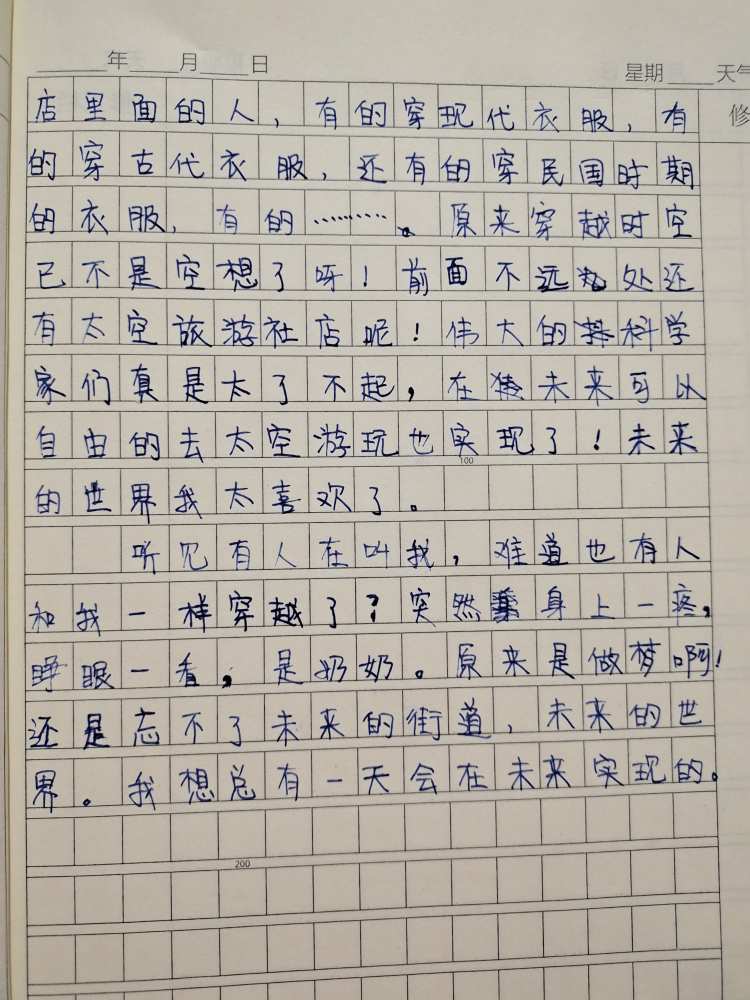 年 月 日 星期 天气
修
店里面的人，有的穿现代衣服，有
的穿古代衣服，还有的穿民国时期
的衣服，有的………。原来穿越时空
已不是空想了呀！前面不远处还
有太空旅游社店呢！伟大的科学
家们真是太了不起，在未来可以
自由的去太空游玩也实现了！未来
100
的世界我太喜欢了。
听见有人在叫我，难道也有人
和我一样穿越了？突然身上一疼，
睁眼一看，是奶奶。原来是做梦啊！
还是忘不了未来的街道，未来的世
界。我想总有一天会在未来实现的。
200